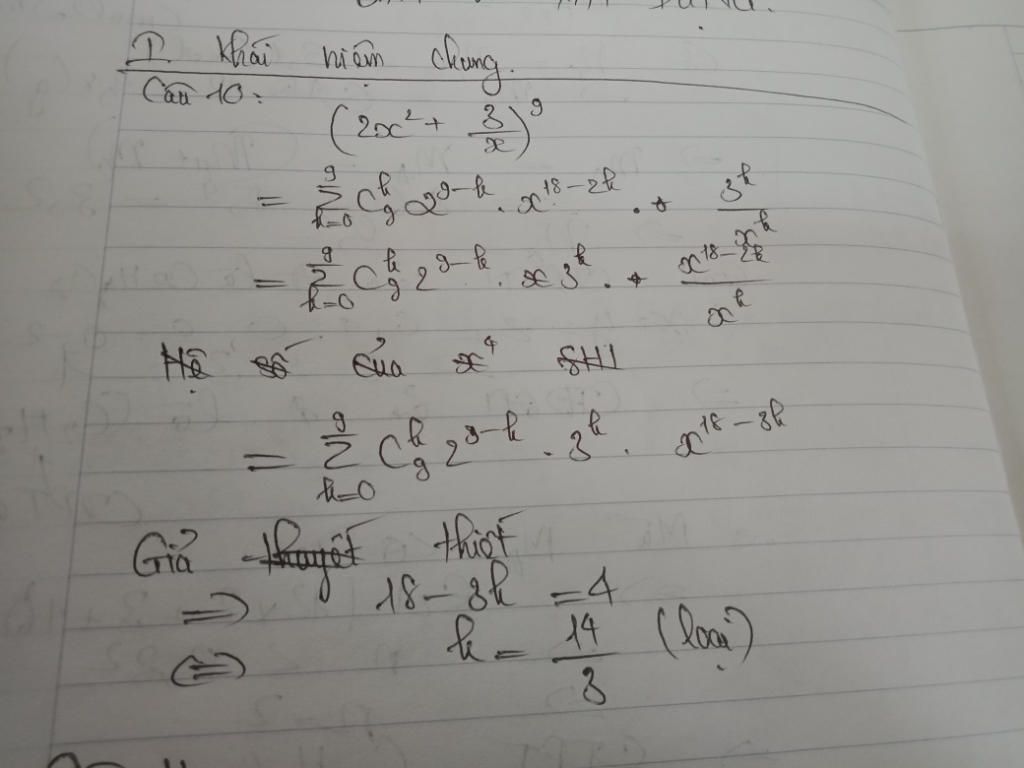 I. Khái niệm chung.
Câu 10:
(2x² + 3/x)⁹
= ∑_{k=0}^{9} C_9^k 2^{9-k} . x^{18-2k} . 3^k/x^k
= ∑_{k=0}^{9} C_9^k 2^{9-k} . x 3^k . x^{18-2k}/x^k
Hệ số của x⁴ SHI
= ∑_{k=0}^{9} C_9^k 2^{9-k} . 3^k . x^{18-3k}
Giả thuyết thiết
=> 18 - 3k = 4
<=> k = 14/3 (loại)